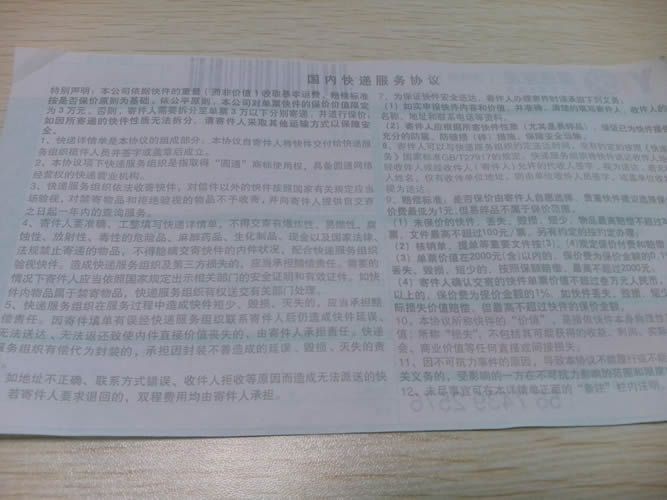 国内快递服务协议
特别声明：本公司依据快件的重量（而非价值）收取基本运费，赔偿标准
按是否保价原则为基础，依公平原则，本公司对单票快件的保价价值限定
为3万元，否则，寄件人需要拆分至单票3万以下分别寄递，并进行保价；
如因所寄递的快件性质无法拆分，请寄件人采取其他运输方式以保障安
全。
1、快递详情单是本协议的组成部分。本协议自寄件人将快件交付给快递服
务组织揽件人员并签字或盖章后成立。
2、本协议项下快递服务组织是指取得“圆通”商标使用权，具备圆通网络
经营权的快递营业机构。
3、快递服务组织依法收寄快件，对信件以外的快件按照国家有关规定应当
场验视，对禁寄物品和拒绝验视的物品不予收寄，并向寄件人提供自交寄
之日起一年内的查询服务。
4、寄件人要准确、工整填写快递详情单，不得交寄有爆炸性、易燃性、腐
蚀性、放射性、毒性的危险品、麻醉药品、生化制品、现金以及国家法律、
法规禁止寄递的物品，不得隐瞒交寄快件的内件状况，配合快递服务组织
验视快件。造成快递服务组织及第三方损失的，应当承担赔偿责任。需要的
情况下寄件人应当依照国家规定出示相关部门的安全证明和有效证件。如快
件内物品属于禁寄物品，快递服务组织有权送交有关部门处理。
5、快递服务组织在服务过程中造成快件短少、毁损、灭失的，应当承担赔
偿责任。因寄件填单有误经快递服务组织联系寄件人后仍造成快件延误、
无法送达、无法返还致使内件直接价值丧失的，由寄件人承担责任。快递
服务组织有偿代为封装的，承担因封装不善造成的延误、毁损、灭失的责
如地址不正确、联系方式错误、收件人拒收等原因而造成无法派送的快
若寄件人要求退回的，双程费用均由寄件人承担。
7、为保证快件安全迅达，寄件人办理寄件时请承担下列义务：
（1）如实申报快件内容和价值，并准确、清晰的填写寄件人、收件人的
名称、地址和联系电话等资料。
（2）寄件人应根据所寄快件性质（尤其是易碎品），保证已为快件提
充分的防震、防碰撞（碎）措施，保障安全运输。
8、寄件人可以与快递服务组织约定送达时间，未有约定的按照《快递
务》国家标准GB/T27917的规定。
人姓名，仅有收件单位地址，则由单位收件人员签字，或盖单位收
视为送达。
9、赔偿标准：是否保价由寄件人自愿选择，贵重快件建议选择保
价费最低为1元，但易碎品不属于保价范围。
（1）未保价的快件，丢失、毁损、短少，物品最高赔偿不超过
票，文件最高不超过100元/票，另有约定的按约定办理。
（2）核销单、提单等重要文件按(3)、(4)规定保价付费和赔偿
（3）单票价值在2000元(含)以内的，保价费为保价金额的0.
丢失、毁损、短少的，按照保额赔偿，最高不超过2000元。
（4）寄件人确认交寄的快件单票价值不超过叁万元人民币，
以上的，保价费为保价金额的1%。如快件丢失、毁损、短
际损失价值赔偿，但最高不超过保价金额。
10、本协议所称快件的“价值”，是指限快件本身具备性
值；所称“损失”，不包括其可能获得的收益、利润、实际
会、商业价值等任何直接或间接损失。
11、因不可抗力事件的原因，导致本协议不能履行或不
关义务的，受影响的一方在不可抗力影响的范围和限度
12、未尽事宜可在本详情单正面的“备注”栏内注明。